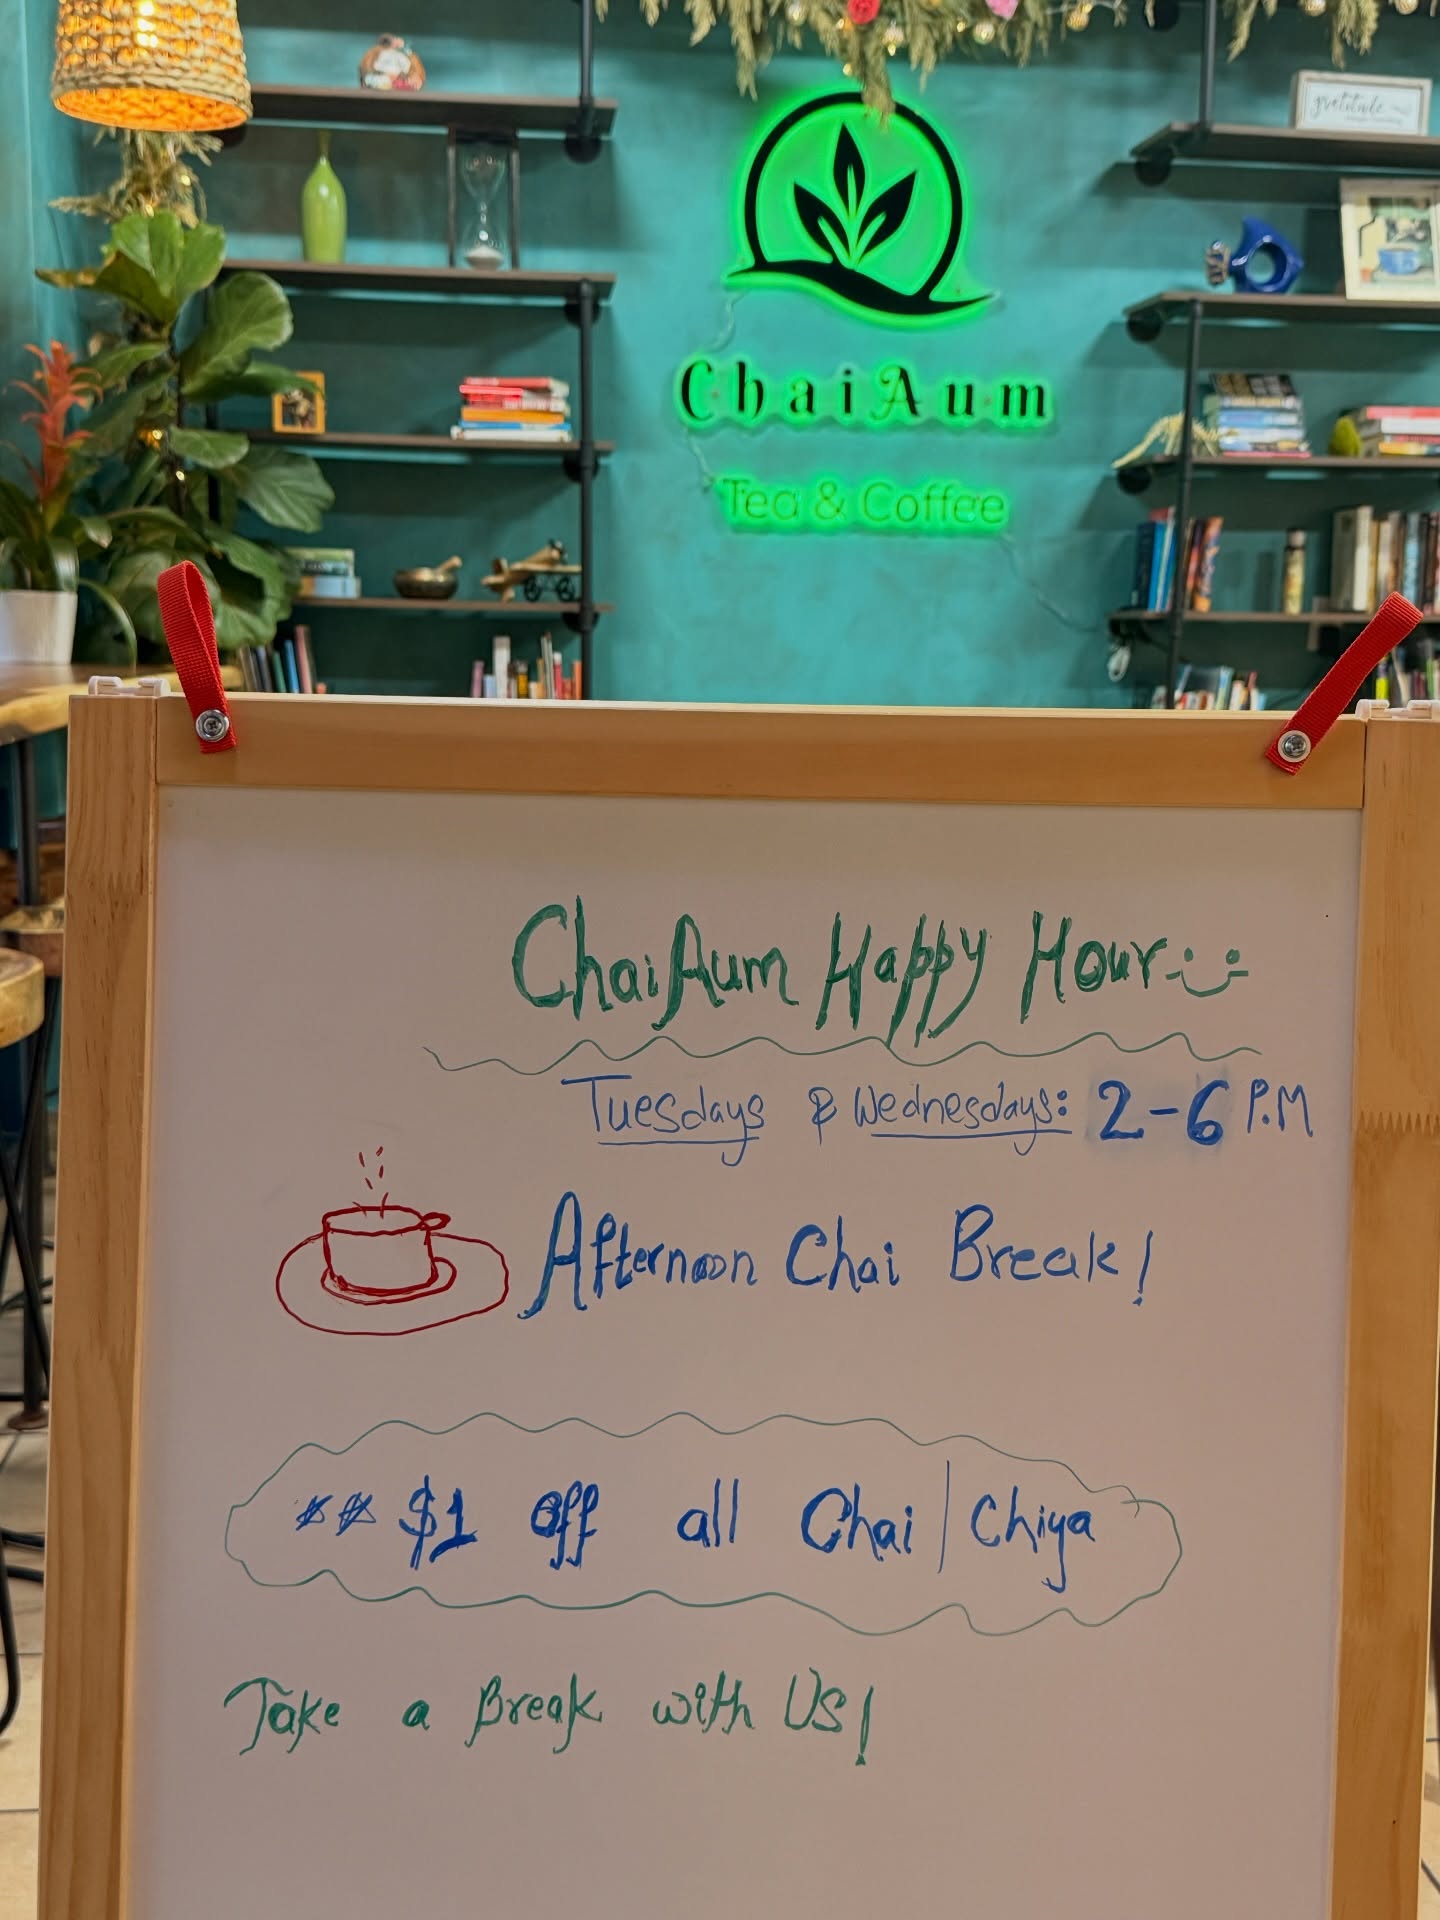 gratitude
ChaiAum
Tea & Coffee
ChaiAum Happy Hour
Tuesdays & Wednesdays: 2-6 P.M
Afternoon Chai Break!
** $1 off all Chai | Chiya
Take a Break with Us!